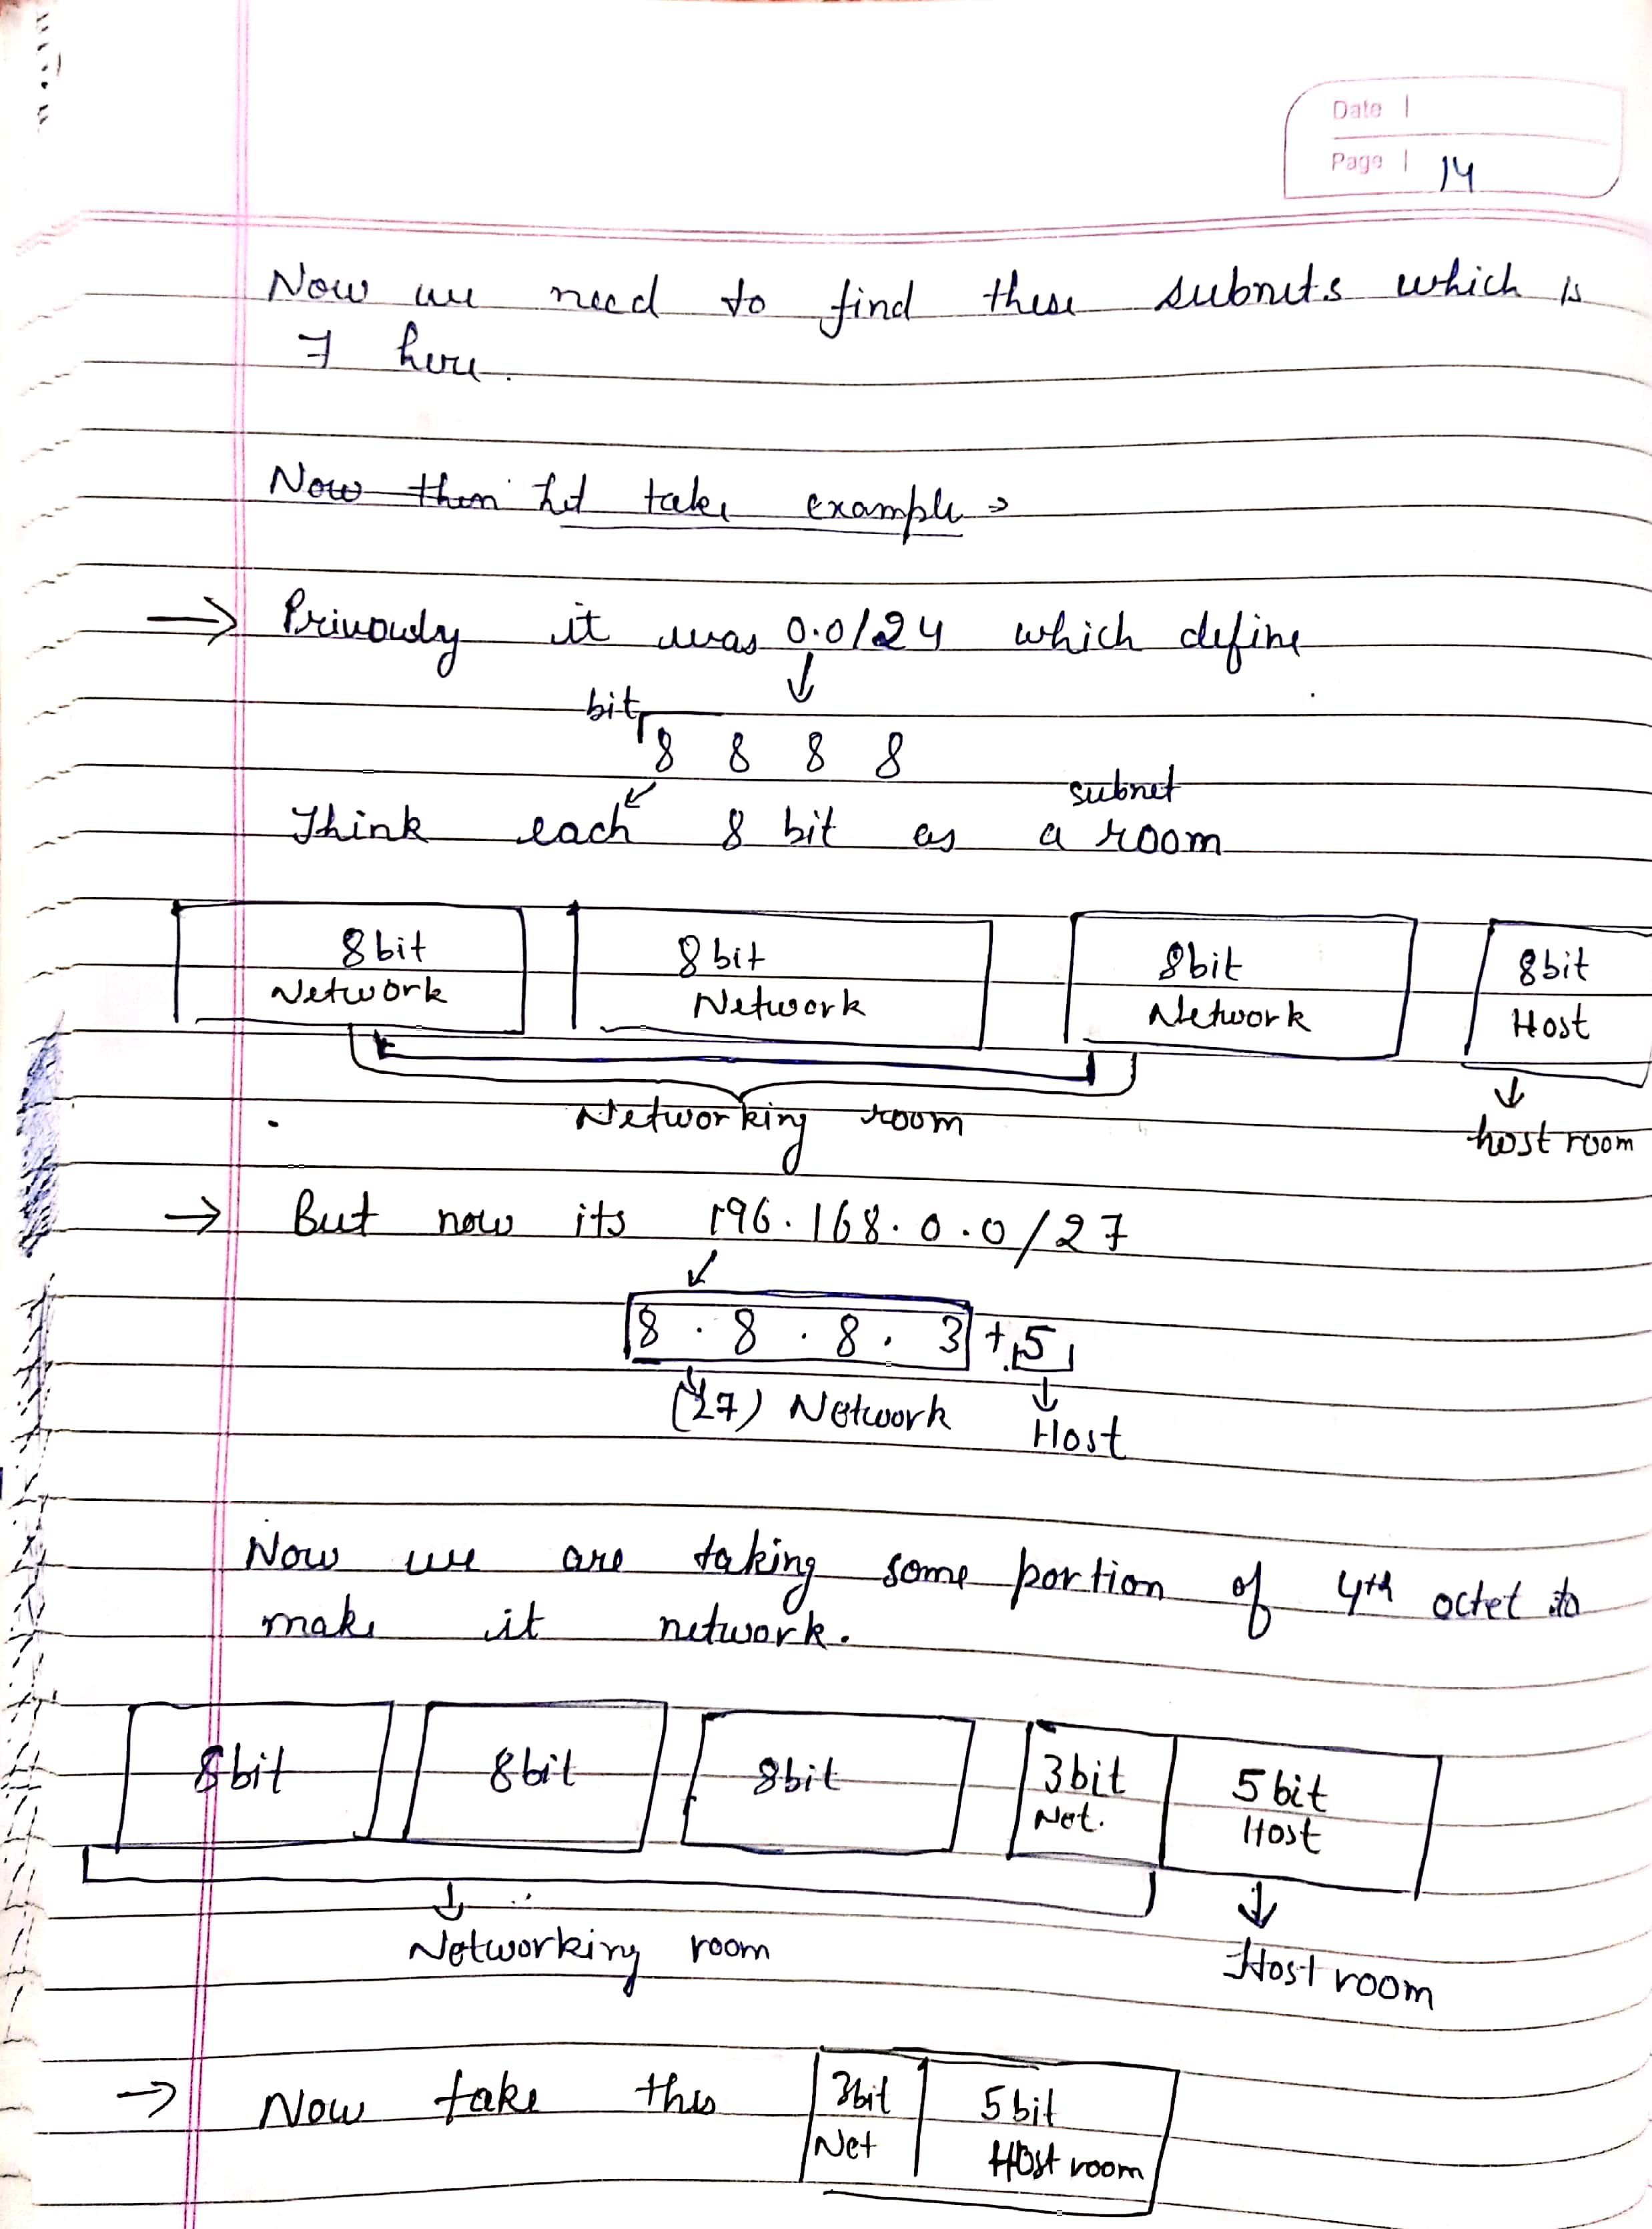 Date
Page 14
Now we need to find these subnets which is
7 here.
Now then let take example
→ Priviously it was 0.0/24 which define
↓
bit
8 8 8 8
subnet
Think each 8 bit as a room
8bit 8bit 8bit 8bit
Network Network Network Host
Networking room host room
→ But now its 196.168.0.0/27
8 . 8 . 8 . 3 + 5
(27) Network Host
Now we are taking some portion of 4th octet to
make it network.
8bit 8bit 8bit 3bit 5bit
Net. Host
Networking room Host room
→ Now take this 3bit 5bit
Net Host room